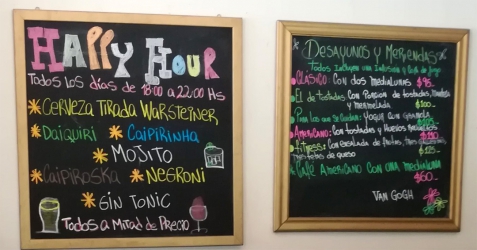 Happy Hour
Todos los días de 18:00 a 22:00 Hs
Cerveza Tirada Warsteiner
Daiquiri
Caipirinha
Mojito
Caipiroska
Negroni
Gin Tonic
Todos a Mitad de Precio
Desayunos y Meriendas
Todos Incluyen una Infusión y
Clásico: Con dos medialunas $95
El de tostadas Con Porción de tostadas,
y mermelada $100
Para los que se Cuidan: Yogur con granola
Americano: Con tostadas y Huevos
Fitness: Con ensalada de frutas,
de queso
Café Americano con una medialuna
$60
Van Gogh